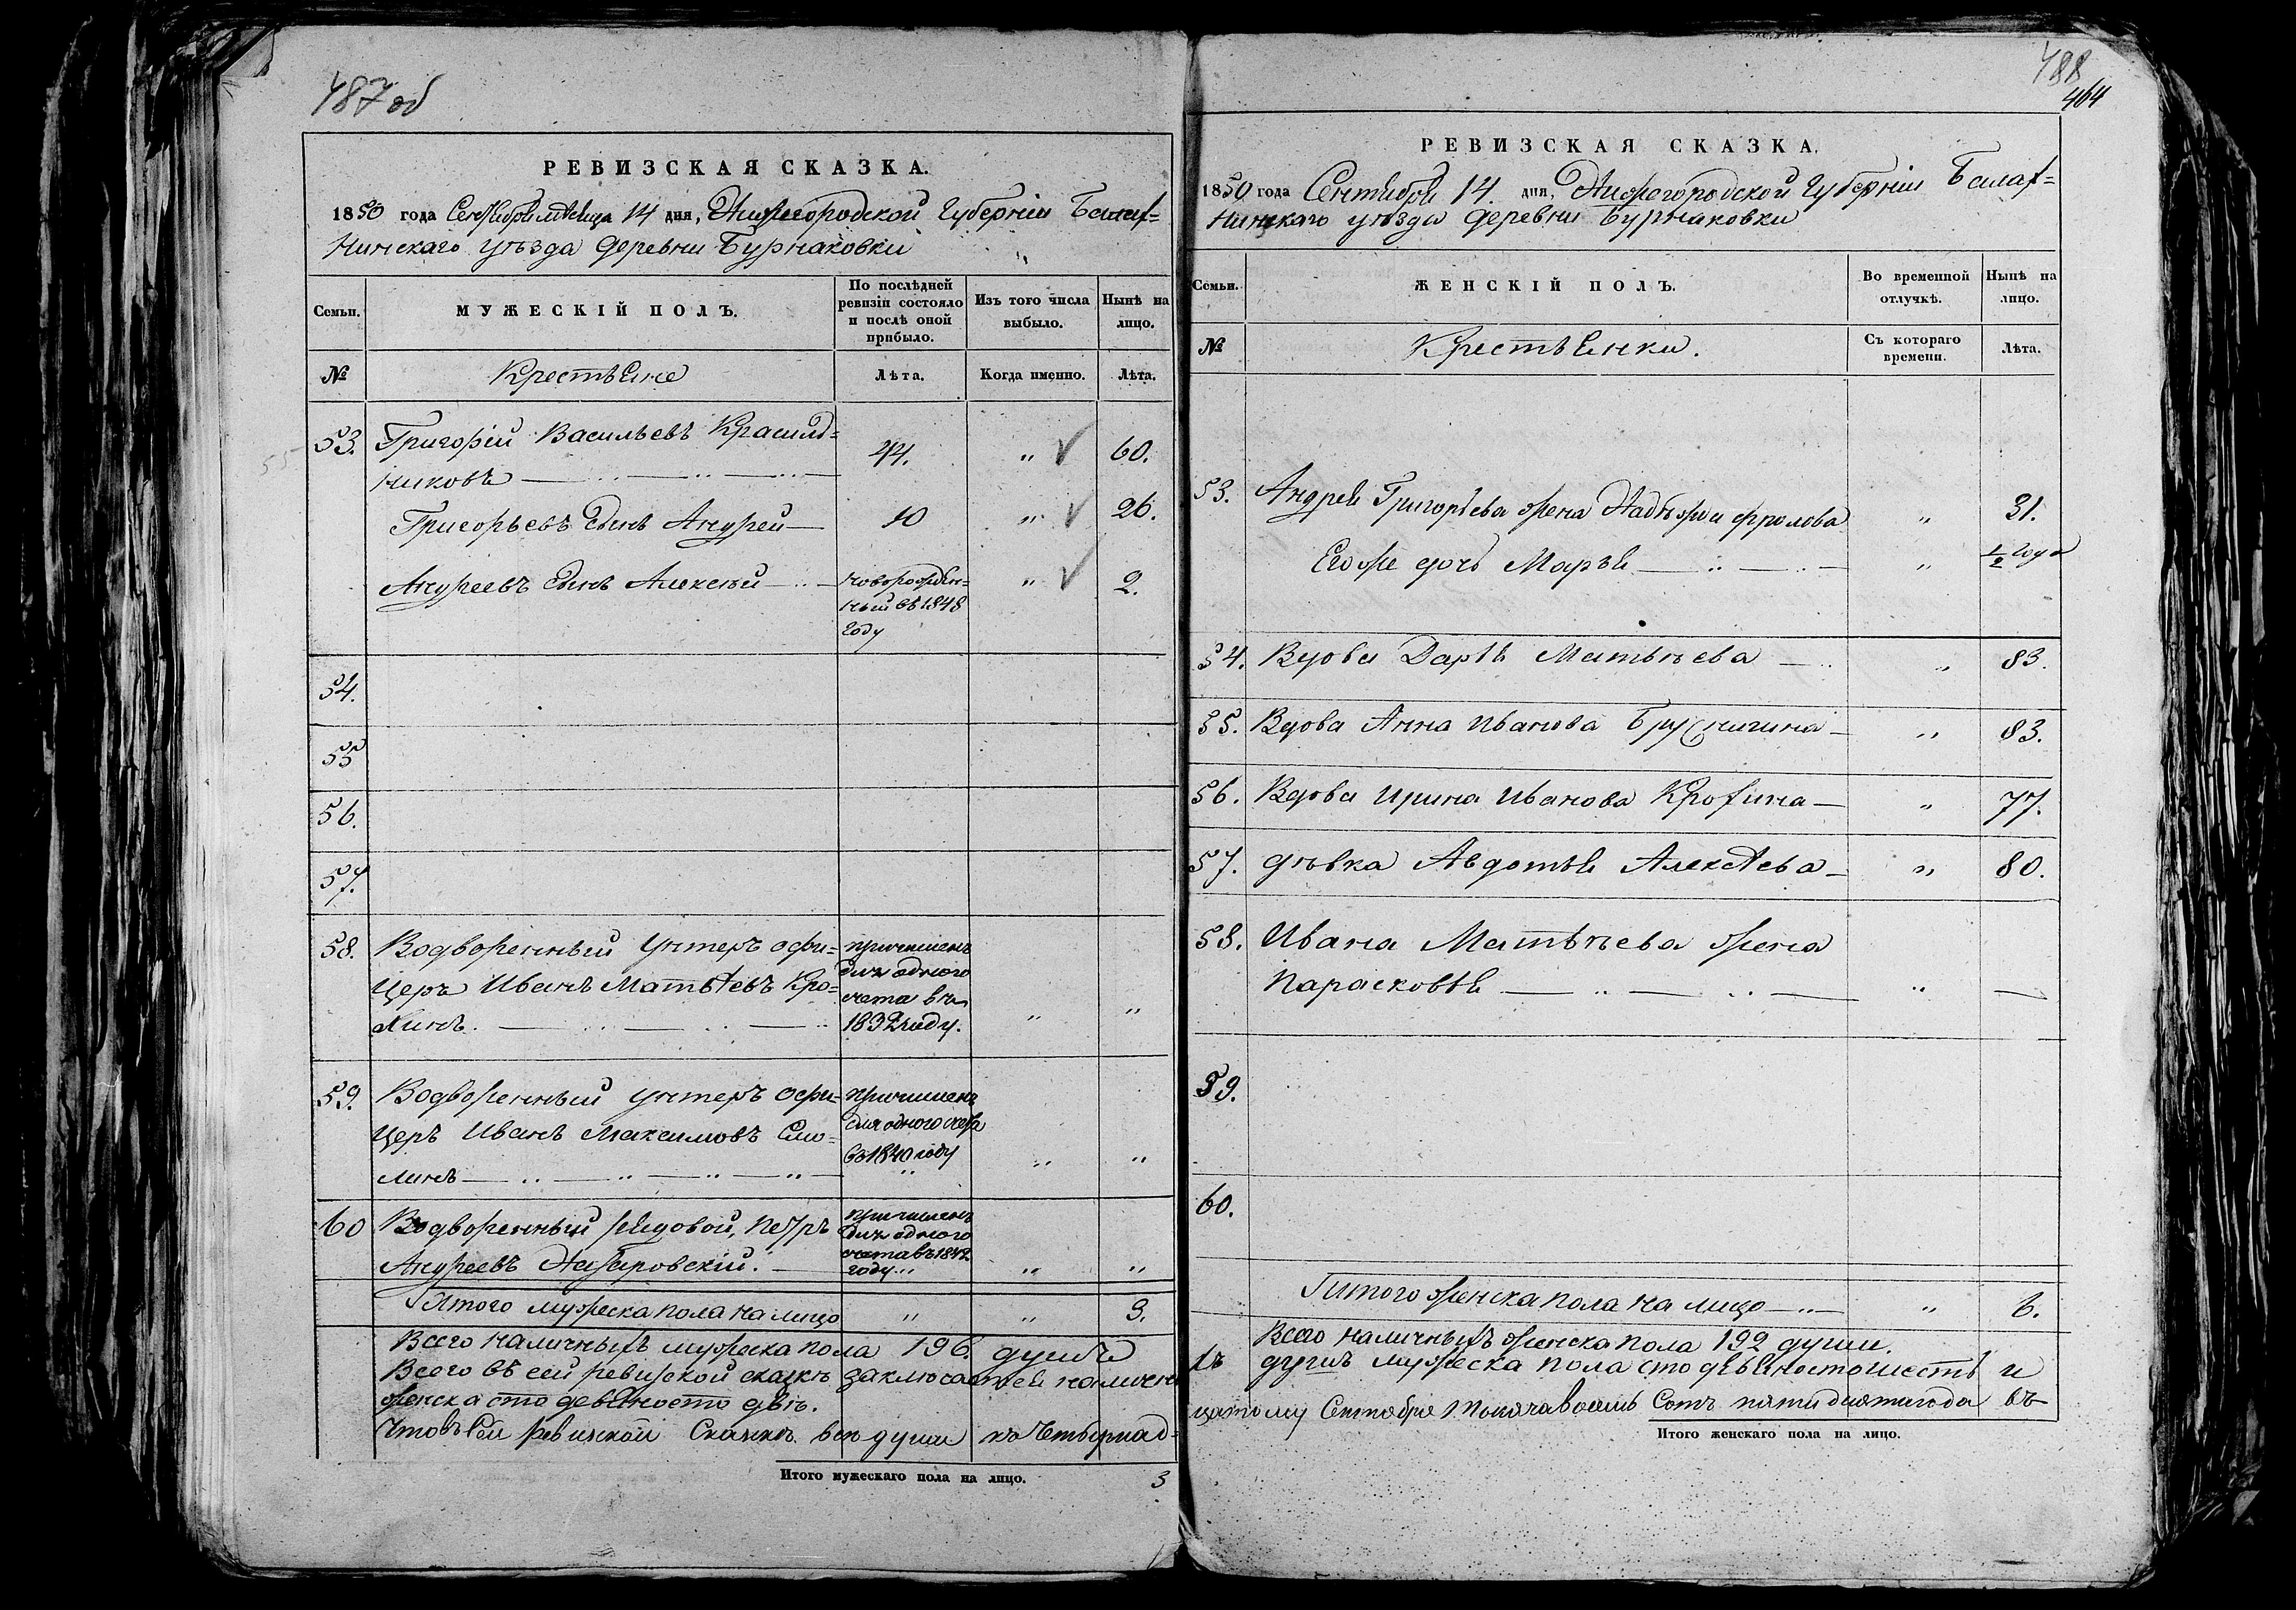 487 об
РЕВИЗСКАЯ СКАЗКА.
1850 года Сентября месяца 14 дня, Нижегородской Губернии Балах=
нинскаго уѣзда деревни Бурнаковки
Семьи. МУЖЕСКІЙ ПОЛЪ. По послѣдней ревизіи состояло и послѣ оной прибыло. Изъ того числа выбыло. Нынѣ на лицо.
№ Крестьяне Лѣта. Когда именно. Лѣта.
53. Григорій Васильевъ Красиль=
никовъ 44. " 60.
Григорьевъ сынъ Андрей 10 " 26.
Андреевъ сынъ Алексѣй новорожден=
ный въ 1848
году " 2.
54.
55
56.
57.
58. Водворенный унтеръ офи=
церъ Иванъ Матвѣевъ Кро=
хинъ. причисленъ
для одного
счета въ
1832 году. " "
59. Водворенный унтеръ офи=
церъ Иванъ Максимовъ Смо=
линъ причисленъ
для одного счета
въ 1840 году " "
60 Водворенный рядовой, Петръ
Андреевъ причисленъ
для одного
счета въ 1842
году " "
Итого мужеска пола на лицо " " 3.
Всего наличныхъ мужеска пола 196. душъ
Всего въ сей ревизской сказкѣ заключается налични
женска сто девяносто двѣ.
Что въ сей ревизской Сказкѣ всѣ души къ Четырнад=
Итого мужескаго пола на лицо. 3
488
464
РЕВИЗСКАЯ СКАЗКА.
1850 года Сентября 14. дня, Нижегородской Губерніи Балах=
нинскаго уѣзда деревни Бурнаковки
Семьи. ЖЕНСКІЙ ПОЛЪ. Во временной отлучкѣ. Нынѣ на лицо.
№ Крестьянки. Съ котораго времени. Лѣта.
53. Андрея Григорьева жена Надѣжда Фролова " 31.
Его же дочь Марья " ½ года
54. Вдова Дарья Матвѣева " 83.
55. Вдова Анна Иванова Брусничина " 83.
56. Вдова Ирина Иванова Крохина " 77.
57. дѣвка Авдотья Алексѣева " 80.
58. Ивана Матвѣева жена
Парасковья " —
59.
60.
Итого женска пола на лицо " 6.
Всего наличныхъ женска пола 192 души.
хъ душъ мужеска пола сто девяносто шесть и
цатому Сентября Тысяча восемь Сотъ пятидесятаго года въ
Итого женскаго пола на лицо.